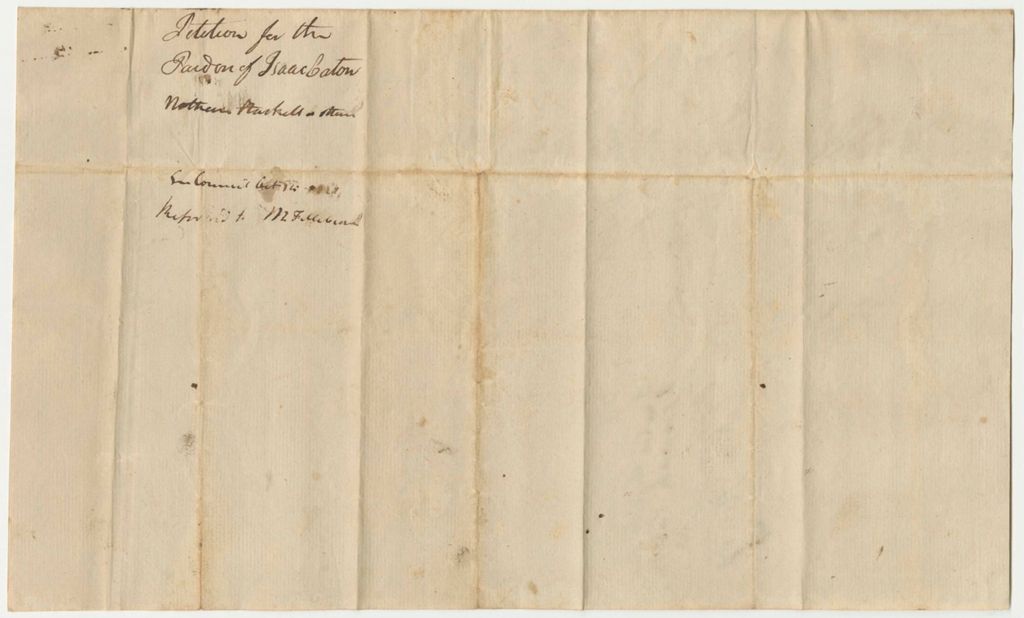 Petition for the
Pardon of Isaac Eaton
Nathan Haskell & others
In Council Oct 14
Referred to Mr Fillebrown